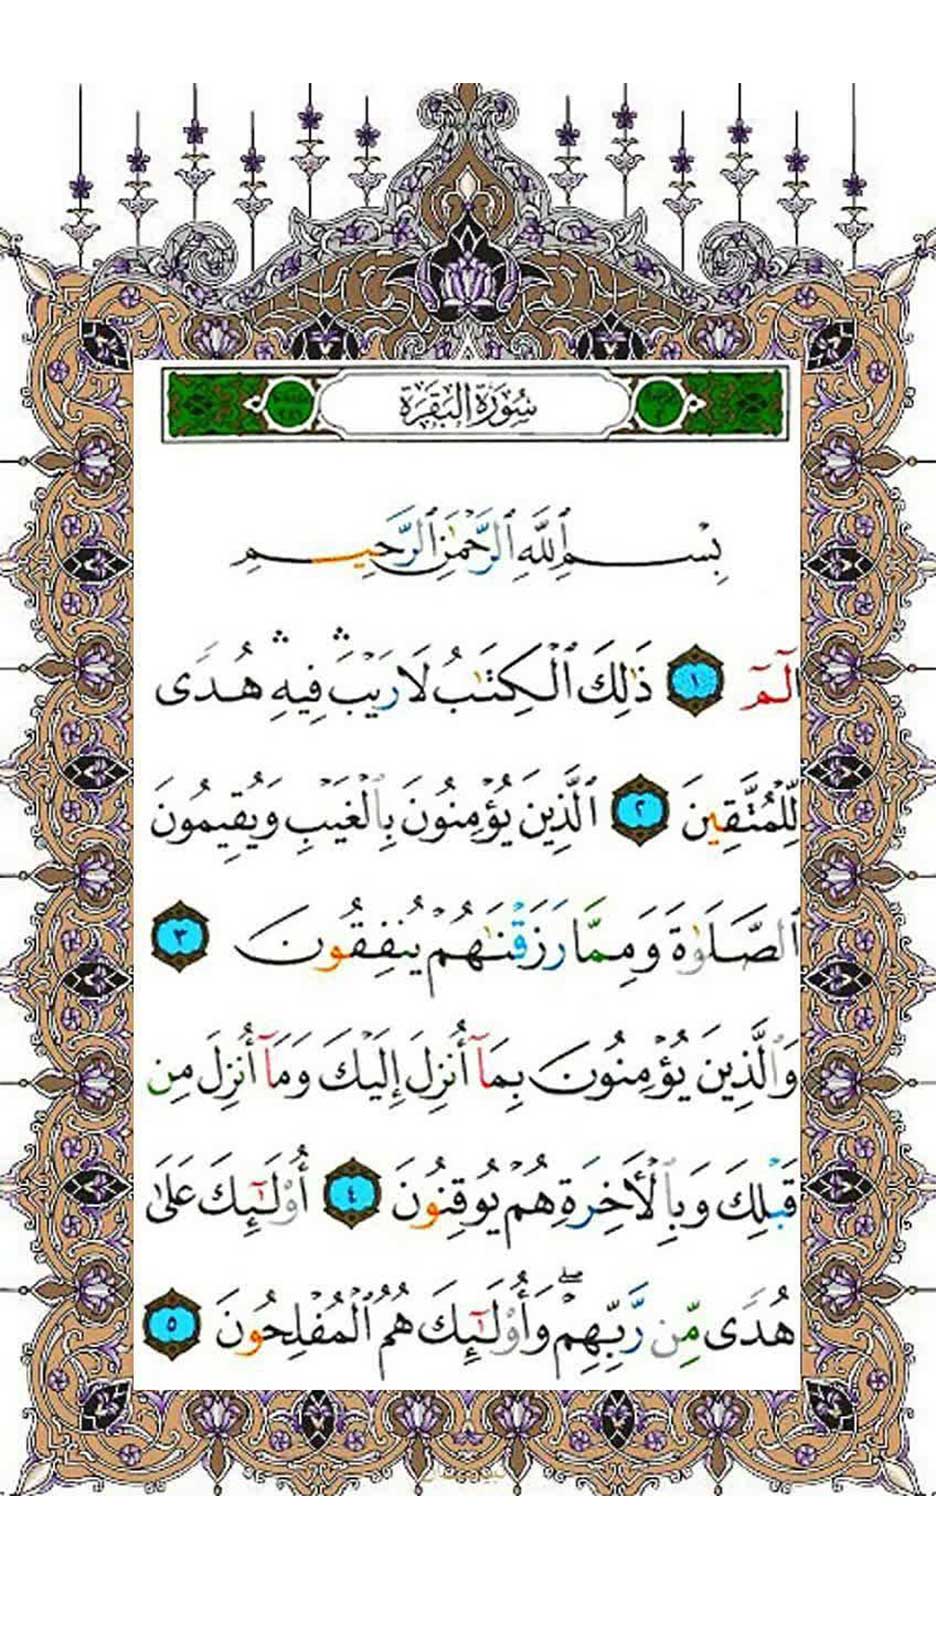 سُورَةُ الْبَقَرَةِ
بِسْمِ ٱللَّهِ ٱلرَّحْمَٰنِ ٱلرَّحِيمِ
الٓمٓ ١ ذَٰلِكَ ٱلْكِتَٰبُ لَا رَيْبَ ۛ فِيهِ ۛ هُدًى
لِّلْمُتَّقِينَ ٢ ٱلَّذِينَ يُؤْمِنُونَ بِٱلْغَيْبِ وَيُقِيمُونَ
ٱلصَّلَوٰةَ وَمِمَّا رَزَقْنَٰهُمْ يُنفِقُونَ ٣
وَٱلَّذِينَ يُؤْمِنُونَ بِمَآ أُنزِلَ إِلَيْكَ وَمَآ أُنزِلَ مِن
قَبْلِكَ وَبِٱلْأَخِرَةِ هُمْ يُوقِنُونَ ٤ أُوْلَٰٓئِكَ عَلَىٰ
هُدًى مِّن رَّبِّهِمْ ۖ وَأُوْلَٰٓئِكَ هُمُ ٱلْمُفْلِحُونَ ٥